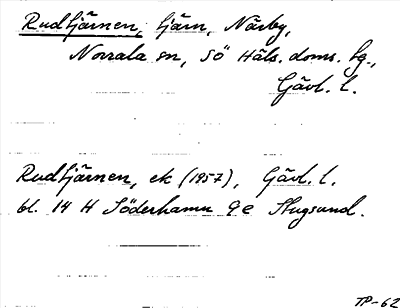 Rudtjärnen, tjärn, Närby,
Norrala sn, Sö Häls. doms. tg.,
Gävl. l.
Rudtjärnen, ek (1957), Gävl. l.
bl. 14 H Söderhamn 9e Stugsund.
TP-62